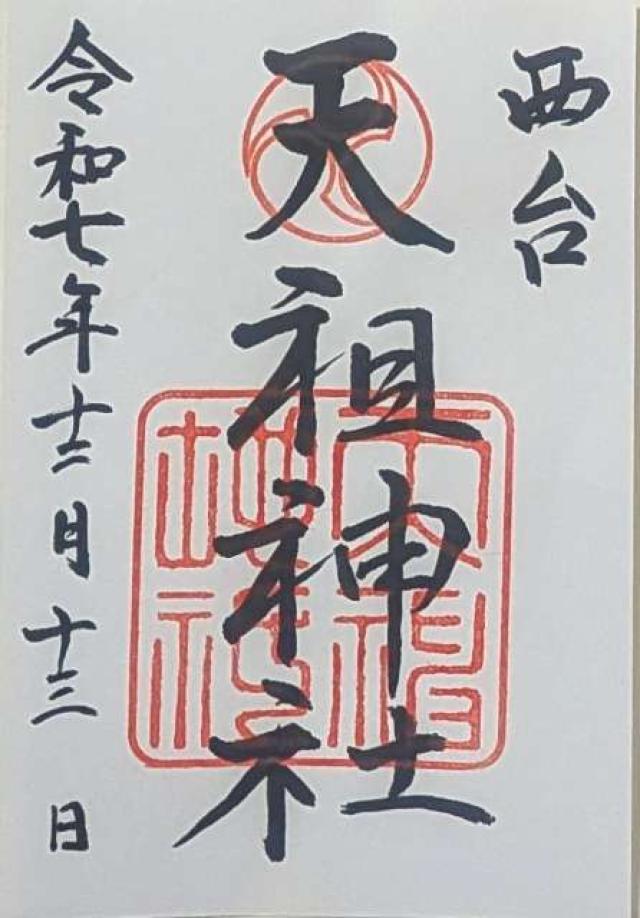 西台
天祖神社
令和七年十二月十三日